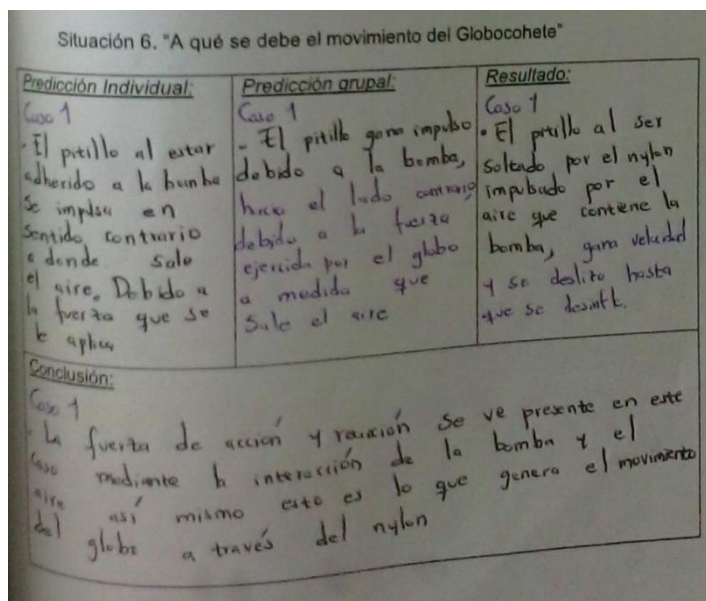 Situación 6. "A qué se debe el movimiento del Globocohete"
Predicción Individual:
Caso 1
. El pitillo al estar
adherido a la bomba
se impulsa en
sentido contrario
a donde sale
el aire. Debido a
la fuerza que se
le aplica
Predicción grupal:
Caso 1
- El pitillo gana impulso
debido a la bomba,
hacia el lado contrario
debido a la fuerza
ejercida por el globo
a medida que
sale el aire
Resultado:
Caso 1
• El pitillo al ser
soltado por el nylon
impulsado por el
aire que contiene la
bomba, gana velocidad
y se deslizo hasta
que se desinfle.
Conclusión:
Caso 1
. La fuerza de acción y reacción se ve presente en este
caso mediante la interacción de la bomba y el
aire así mismo esto es lo que genera el movimiento
del globo a través del nylon